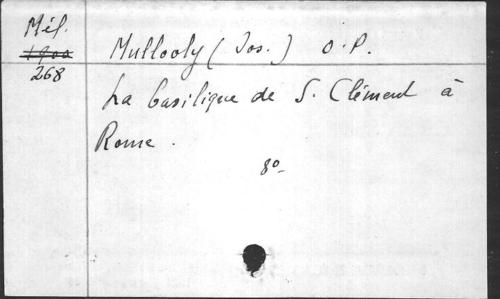 Mél.
1900
268
Mullooly (Jos.) O.P.
La basilique de S. Clément à
Rome.
8º